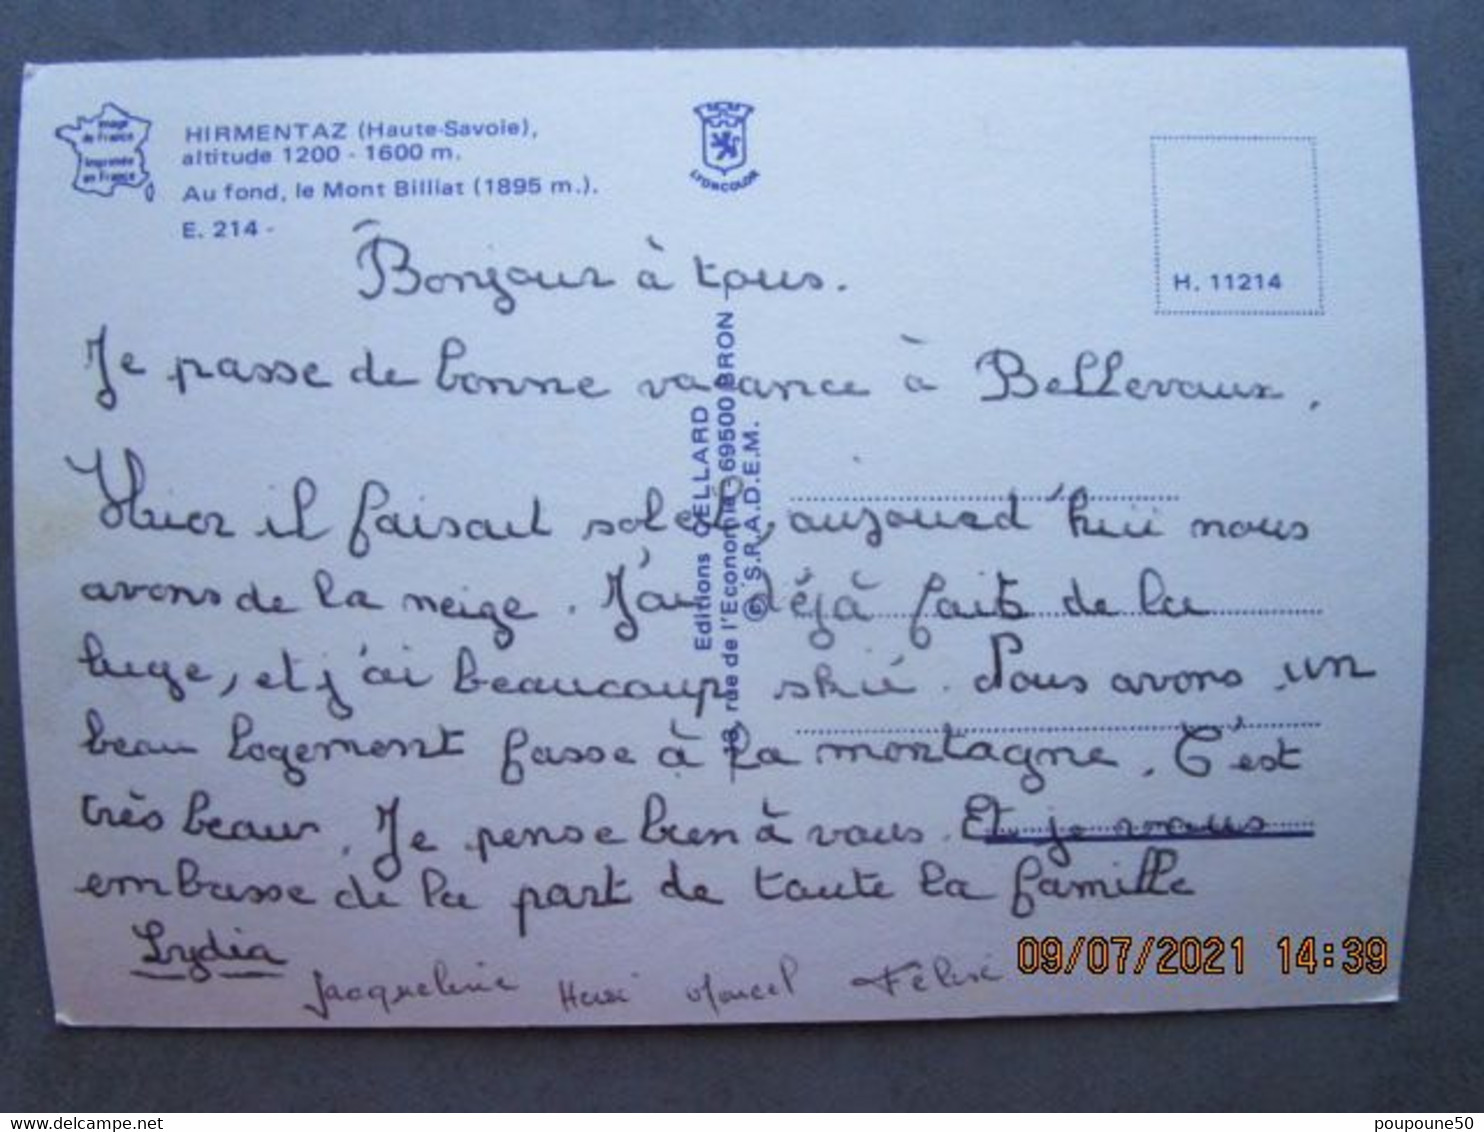 Image
de France
Imprimée
en France
HIRMENTAZ (Haute-Savoie),
altitude 1200 - 1600 m.
Au fond, le Mont Billiat (1895 m.).
E. 214 -
LYONCOLOR
H. 11214
Editions CELLARD
18, rue de l'Economie - 69500 BRON
© S.P.A.D.E.M.
Bonjour à tous.
Je passe de bonne vacance à Bellevaux.
Hier il faisait soleil, aujoued'hui nous
avons de la neige. J'ai déjà faits de la
luge, et j'ai beaucoup skié. Nous avons un
beau logement fasse à la montagne. C'est
très beau. Je pense bien à vous. Et je vous
embasse de la part de toute la famille
Lydia
Jacqueline Henri Marcel
09/07/2021 14:39
poupoune50